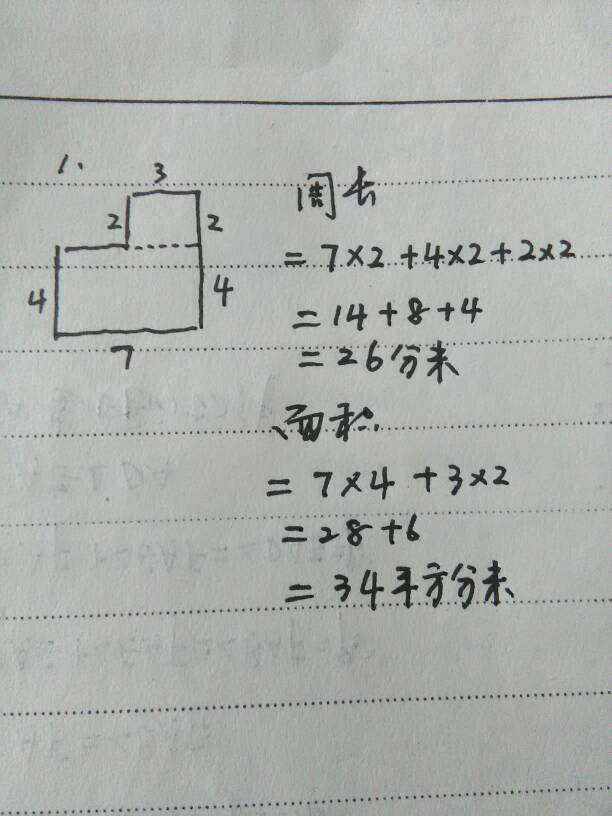 1.
3
2
2
4
4
7
周长
=7×2+4×2+2×2
=14+8+4
=26分米
面积
=7×4+3×2
=28+6
=34平方分米